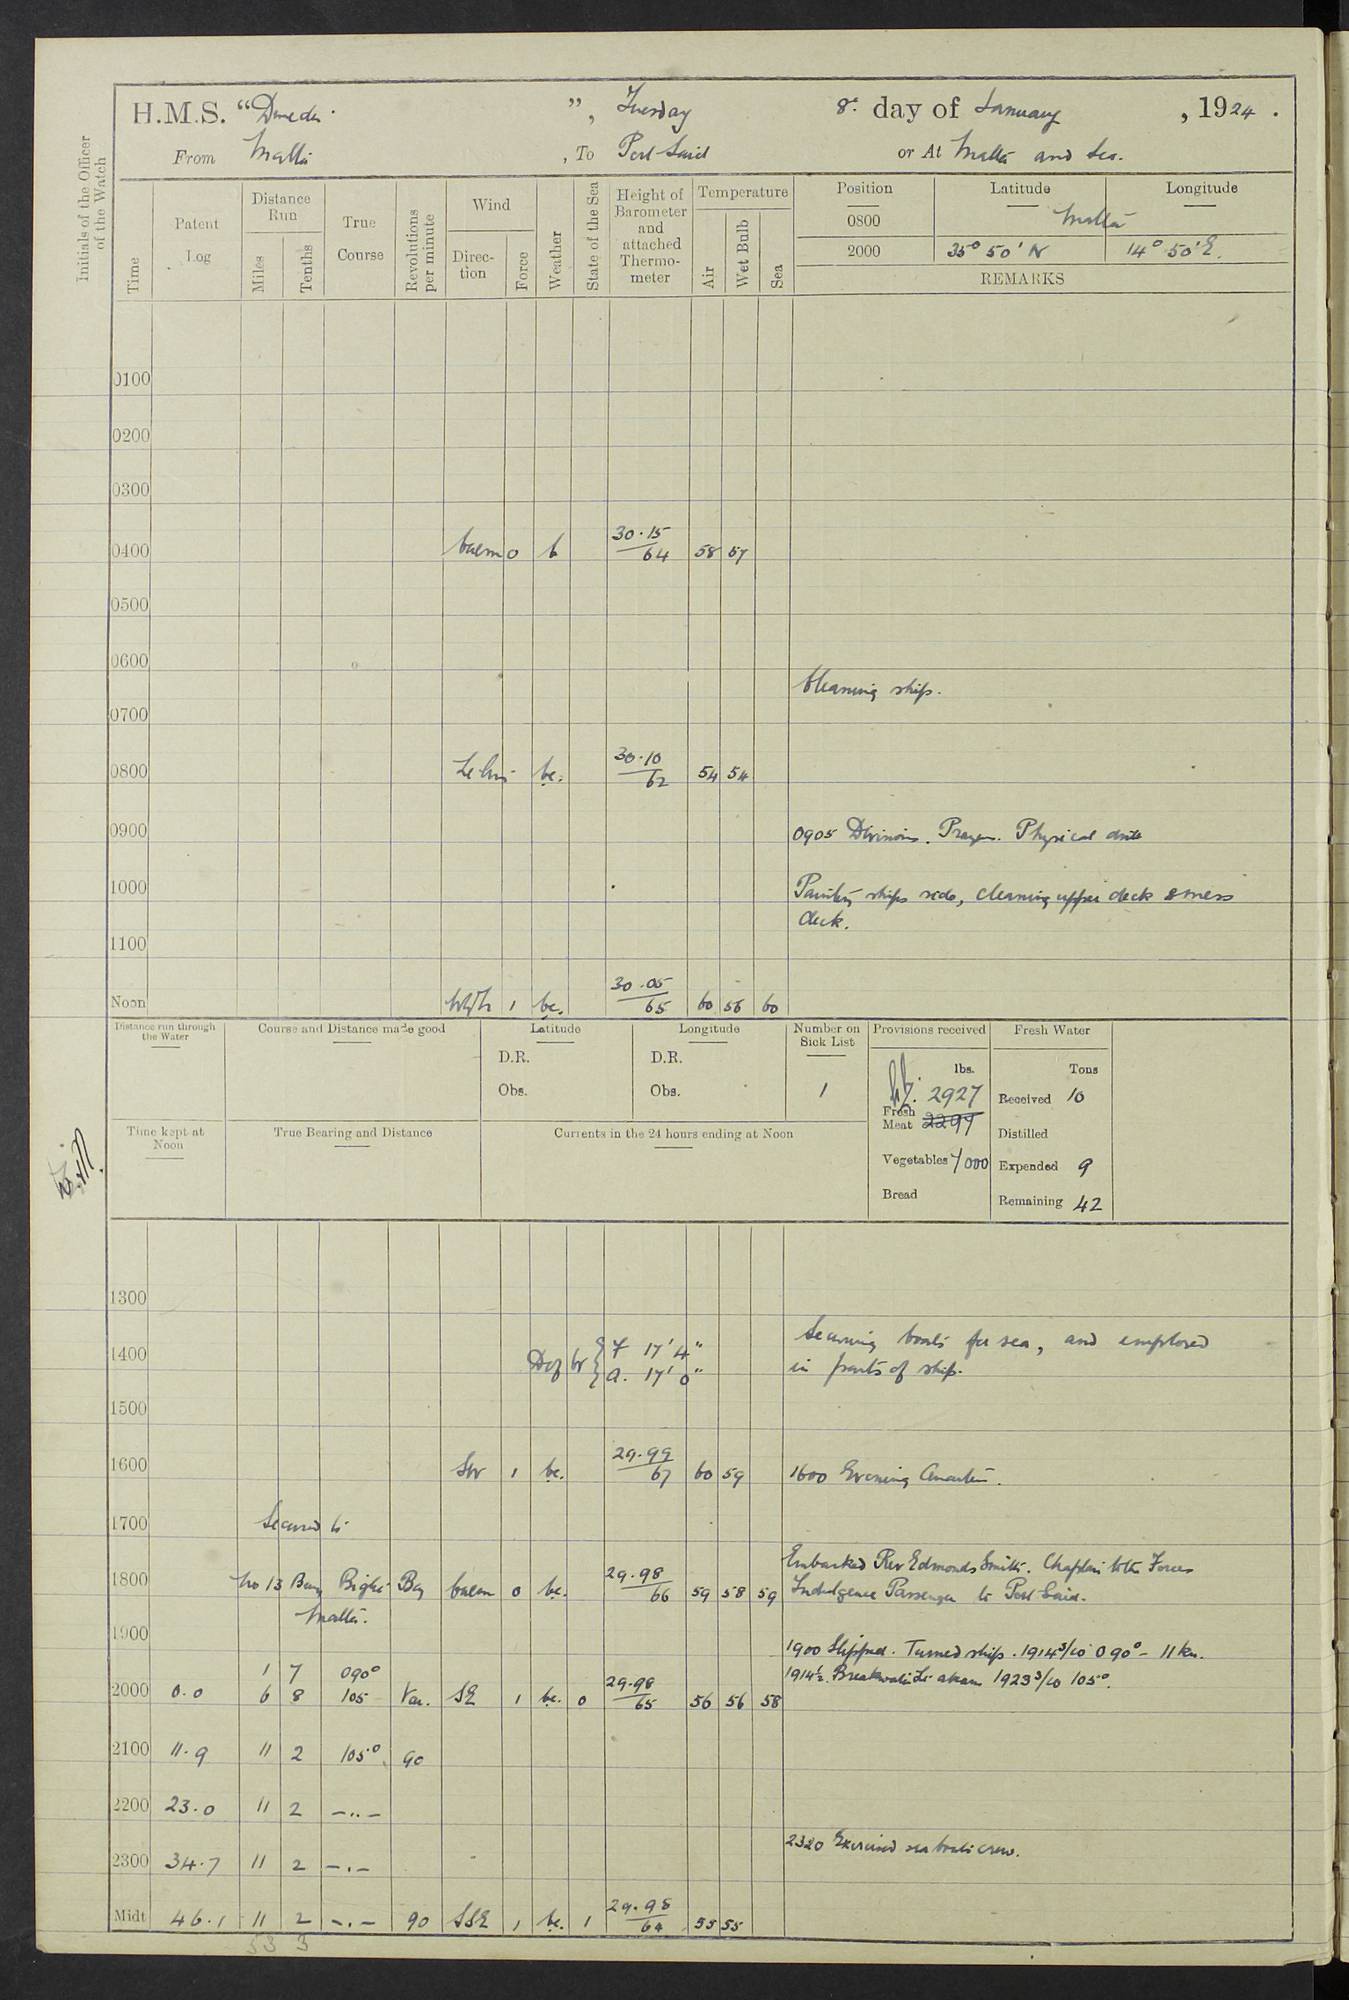 H.M.S. "Dunedin", Tuesday 8th day of January, 1924.
From Malta, To Port Said or At Malta and Sea.
Initials of the Officer of the Watch
Time
Patent Log
Distance Run
Miles
Tenths
True Course
Revolutions per minute
Wind
Direction
Force
Weather
State of the Sea
Height of Barometer and attached Thermometer
Temperature
Air
Wet Bulb
Sea
Position Latitude Longitude
0800 Malta
2000 35° 50' N 14° 50' E.
REMARKS
0100
0200
0300
0400 Calm 0 b 30.15 64 58 57
0500
0600
Cleaning ship.
0700
0800 Lt Airs bc. 30.10 62 54 54
0900
0905 Divisions. Prayers. Physical drill
1000
Painting ships side, cleaning upper deck & mess
deck.
1100
Noon 1 bc. 30.05 65 60 56 60
Distance run through the Water
Course and Distance made good
Latitude
D.R.
Obs.
Longitude
D.R.
Obs.
Number on Sick List
1
Provisions received
lbs.
2927
Fresh Meat 2299
Vegetables 7000
Bread
Fresh Water
Tons
Received 10
Distilled
Expended 9
Remaining 42
Time kept at Noon
True Bearing and Distance
Currents in the 24 hours ending at Noon
1300
Securing boats for sea, and employed
1400 F 17' 4"
A. 17' 0"
in parts of ship.
1500
1600 SW 1 bc. 29.99 67 60 59 1600 Evening Quarters.
1700 Secured to
Embarked Rev Edmonds Smith. Chaplain to the Forces
1800 No 13 Buoy Bighi Bay Calm 0 bc. 29.98 66 59 58 59 Indulgence Passenger to Port Said.
Malta.
1900
1900 Slipped. Turned ship. 1914 3/10 090° - 11 kn.
1 7 090°
1914½. Breakwater Lt abeam 1923 3/10 105°.
2000 0.0 6 8 105 Var. SE 1 bc. 0 29.98 65 56 56 58
2100 11.9 11 2 105° 90
2200 23.0 11 2 -..-
2320 Exercised sea boats crew.
2300 34.7 11 2 -.-
Midt 46.1 11 2 -.- 90 SSE 1 bc. 1 29.98 64 55 55
53 3